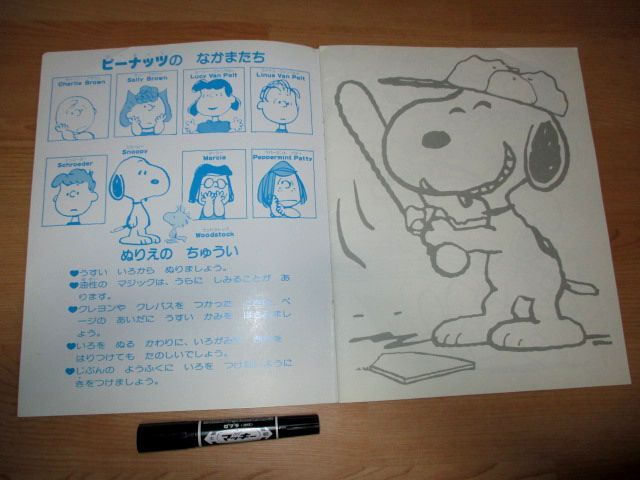 ピーナッツの なかまたち
Charlie Brown
Sally Brown
Lucy Van Pelt
Linus Van Pelt
Schroeder
Snoopy
Marcie
Peppermint Patty
Woodstock
ぬりえの ちゅうい
♥うすい いろから ぬりましょう。
♥油性の マジックは、うらに しみることが あ
ります。
♥クレヨンや クレパスを つかった
ペ
ージの あいだに うすい かみを
しょう。
♥いろを ぬる かわりに、いろがみ
を
はりつけても たのしいでしょう。
♥じぶんの ようふくに いろを つけ
ように
きをつけましょう。
マッキー